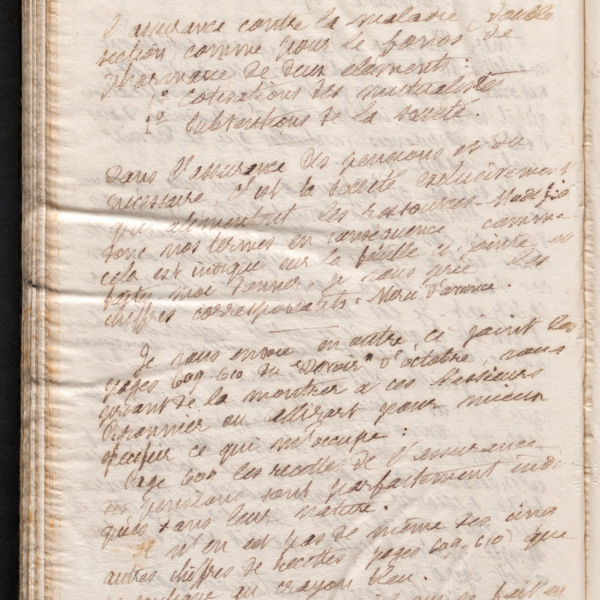 l'assurance contre la maladie, double
section comme pour le fonds de
Pharmacie de deux elements :
1º cotisations des mutualistes
2º subventions de la société.
Dans l'assurance des pensions et du
nécessaire, c'est la société exclusivement
qui alimentait les ressources. Modifiez
donc nos termes en conséquence, comme
cela est indiqué sur la feuille ci jointe et
faites moi donner, je vous prie les
chiffres correspondants. Merci d'avance.
Je vous envoie en outre, ci joint les
pages 609-610 du "Devoir" d'octobre, vous
priant de la montrer à ces Messieurs
Pernin ou Alizart pour mieux
préciser ce qui m'occupe :
Page 609 les recettes de l'assurance
des pensions sont parfaitement indi-
quées dans leur nature.
Il n'en est pas de même des cinq
autres chiffres de recettes (pages 609-610) que
au crayon bleu.